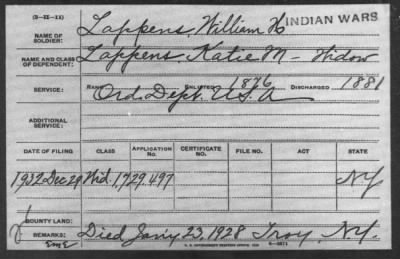 (3-II-11)
INDIAN WARS
NAME OF SOLDIER: Lappens, William H
NAME AND CLASS OF DEPENDENT: Lappens, Katie M - Widow
SERVICE: RANK ENLISTED 1876 DISCHARGED 1881
Ord. Dept. U.S.A
ADDITIONAL SERVICE:
DATE OF FILING CLASS APPLICATION No. CERTIFICATE No. FILE NO. ACT STATE
1932 Dec 29 Wid. 1,729,497 NY
COUNTY LAND:
REMARKS: Died Jan'y 23, 1928 Troy, N.Y.
EME
U. S. GOVERNMENT PRINTING OFFICE